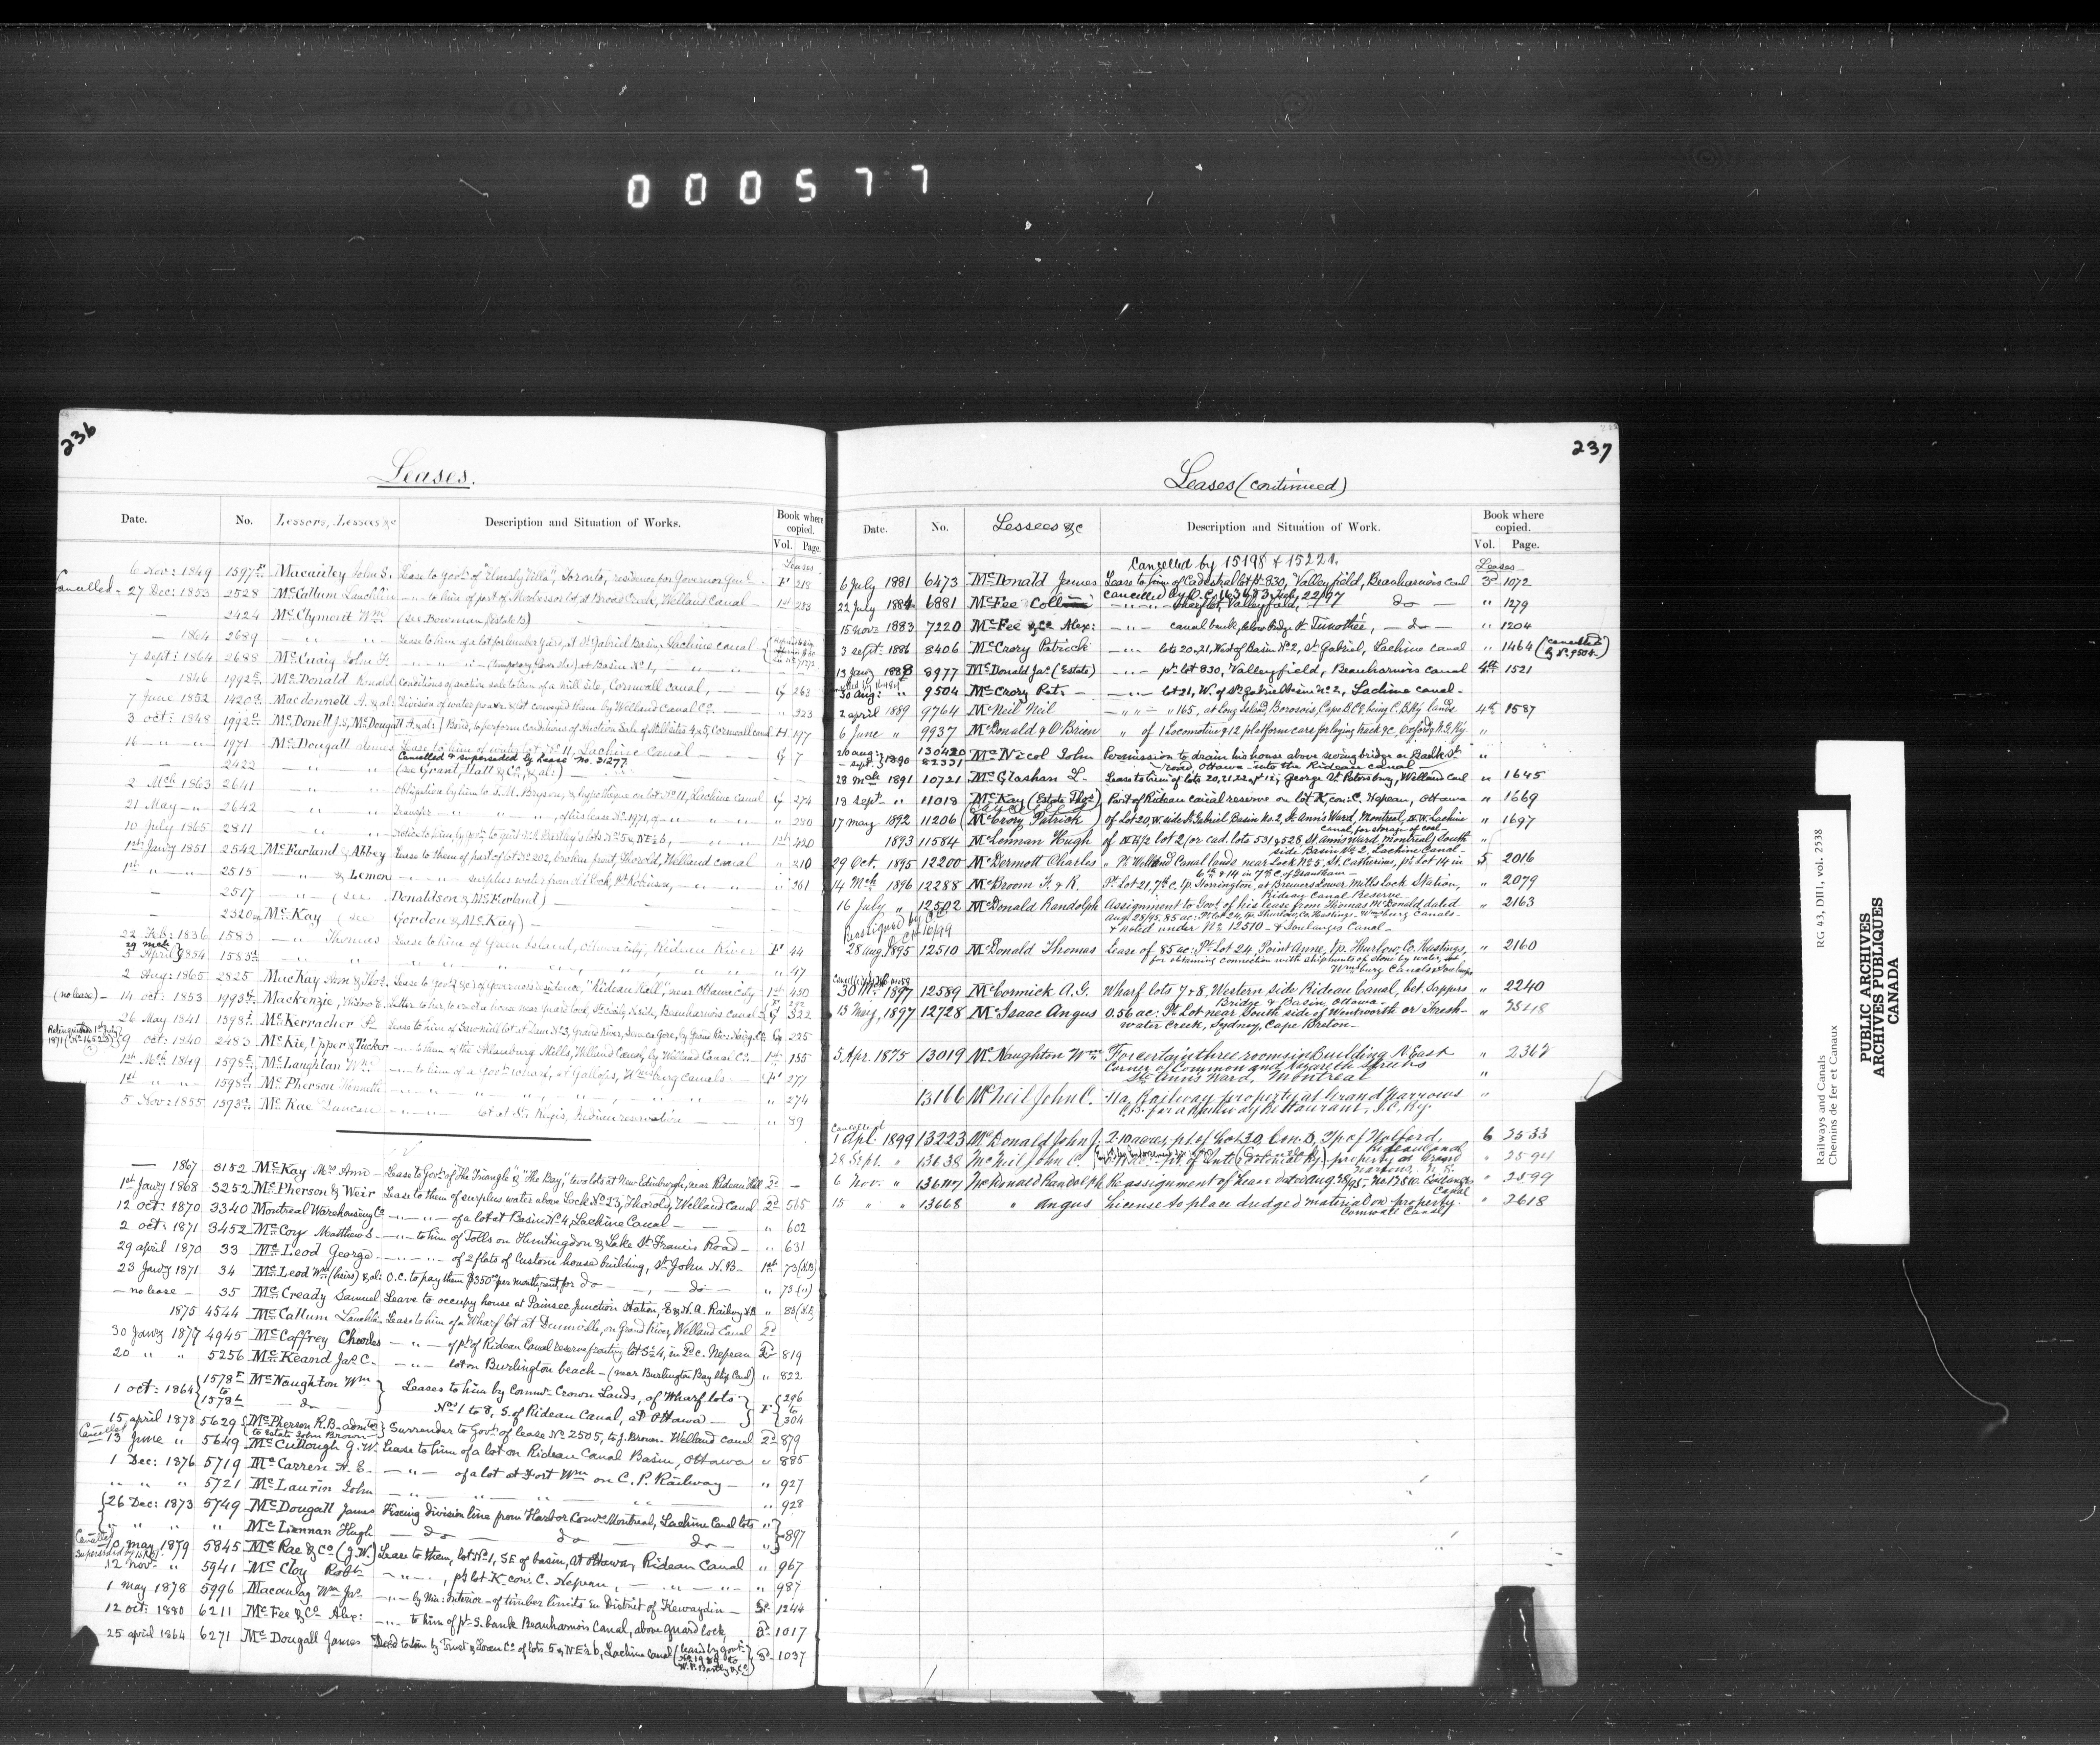 000577
236
Leases.
Date. No. Lessors, Lessees &c Description and Situation of Works. Book where copied. Vol. Page.
Leases
6 Nov: 1849 1597 Macauley John S. Lease to Govt. of "Elmsly Villa", Toronto, residence for Governor Genl. F 218
Cancelled - 27 Dec: 1853 2528 McCallum Lauchlin to him of part of lot at Broad Creek, Welland Canal 1st 233
— 2424 McClymont Wm. (See Bowman
— 1864 2689 Lease to him of a lot at St. Gabriel Basin, Lachine canal
7 Sept: 1864 2688 McCuaig John F. (temporary at Basin No. 1,
— 1846 1992 McDonald Ronald Conditions of auction sale to him of a mill site, Cornwall canal, G 263
7 June 1852 1420 Macdonnell A. & al: Division of water power & lot conveyed them by Welland Canal Co. " 323
3 oct: 1848 1992 McDonell J.S., McDougall A. & al: Bond, to perform conditions of Auction Sale of Mill sites 4 & 5, Cornwall canal H 197
16 — " — " 1971 McDougall James Lease to him of water lot No. 11, Lachine Canal — G 7
Cancelled & superseded by Lease No. 21277.
— 2422 " " (see Grant, Hall & Co., & al:)
2 Mch 1863 2641 " " Obligation by him to S.M. Bryson, & hypothèque on lot No. 11, Lachine Canal G 274
21 May — " 2642 " " Transfer of his lease No. 1971, of " 280
10 July 1865 2811 " " Notice to him, by Govt. to quit lots No. 5 & NE ½ 6, 1st 420
1st Jany 1851 2542 McFarland & Abbey Lease to them of part of lot No. 202, broken front, Thorold, Welland canal " 210
1st " — " 2515 — " & Lemon surplus water from Lock, Pt. Robinson, " 261
— 2517 — " — (see Donaldson & McFarland) —
— 2320 McKay (see Gordon & McKay) —
22 Feb: 1836 1583 — " Thomas Lease to him of Green Island, Ottawa City, Rideau River F 44
29 Mch 3 April } 1854 1583 " 47
2 Aug: 1865 2825 MacKay Ann & Thos. Lease to Govt. of Governor's residence, "Rideau Hall", near Ottawa City 1st 450
(no lease) — 14 oct: 1853 1993 Mackenzie, Widow Letter to her to erect a house near guard lock, Beauharnois Canal G 322
26 May 1841 1598 McKerracher P. Lease to him of Sawmill lot at Dam No. 3, Grand River,
Relinquished 1st July 1871 (No. 16523) 9 oct: 1840 2483 McKie, Upper & Tucker to them of the Allanburg Mills, Welland Canal, by Welland Canal Co. 1st 155
1st Mch 1849 1598 McLaughlan Wm. to him of a Govt. wharf, at Gallops, Wmsburg canals F 271
1st " " 1598 McPherson Kenneth " 274
5 Nov: 1855 1593 McRae Duncan lot at St. Regis, Indian reservation " 89
— 1867 3152 McKay Mrs. Ann — Lease to Govt. of "The Triangle" & "The Bay" two lots at New Edinburgh, near Rideau Hall 2d —
1st Jany 1868 3252 McPherson & Weir Lease to them of surplus water above Lock No. 23, Thorold, Welland Canal 2d 565
12 oct: 1870 3340 Montreal Warehousing Co — " — " — of a lot at Basin No. 4, Lachine Canal — " 602
2 oct: 1871 3452 McCoy Matthew S. — " — to him of Tolls on Huntingdon & Lake St. Francis Road — " 631
29 april 1870 33 McLeod George — " — of 2 flats of Custom house building, St. John N.B. 1st 73 (N.B)
23 Jany 1871 34 McLeod Wm (heirs) & al: O.C. to pay them $350 per month, rent, for do — do — " 73 (")
— no lease — 35 McCready Samuel Leave to occupy house at Painsec Junction Station, E & N.A. Railway N.B. " 83 (N.B)
1875 4544 McCallum Lauchlin Lease to him of a Wharf lot at Dunnville, on Grand River, Welland Canal 2d
30 Jany 1877 4945 McCaffrey Charles — " — of pt. of Rideau Canal reserve fronting lot 34, in D c. Nepean 2d 819
20 " " 5256 McKeand Jas. C. — " — lot on Burlington beach — (near Burlington Bay ship Canal) " 822
1 oct: 1864 { 1578 to 1578 McNaughton Wm — do — } Leases to him by Commr. Crown Lands, of Wharf lots Nos. 1 to 8, S. of Rideau Canal, at Ottawa — } F { 296 to 304
15 april 1878 5629 { McPherson R.B. admtor to estate John Brown } Surrender to Govt. of lease No. 2505, to J. Brown - Welland canal 2d 879
Cancelled 13 June " 5649 McCullough G. W. Lease to him of a lot on Rideau Canal Basin, Ottawa " 885
1 Dec: 1876 5719 McCarren H. E. — " — of a lot at Fort Wm on C. P. Railway — " 927
" " " 5721 McLaurin John — " — " 928
{ 26 Dec: 1873 5749 McDougall James Fixing division line from Harbor Comrs. Montreal, Lachine Canal lots "
" " " " McLennan Hugh — do — do — do — " } 897
Cancelled 10 May 1879 5845 McRae & Co (J.W.) Lease to them, lot No. 1, SE of basin, at Ottawa, Rideau Canal " 967
12 Nov. " 5941 McCloy Robt. — " — , pt. lot K con: C. Nepean, — " — " 987
1 may 1878 5996 Macaulay Wm Jas. — " — by Min: Interior — of timber limits in District of Kewaydin — 3d 1244
12 oct: 1880 6211 McFee & Co Alex: — " — to him of pt. S. bank Beauharnois Canal, above guard lock, 3d 1017
25 april 1864 6271 McDougall James Deed to him by Trust & Loan Co. of lots 5 & NE ½ 6, Lachine Canal (leased by Govt. to W. P. Bartley & Co) 3d 1037
237
Leases (continued)
Date. No. Lessees &c Description and Situation of Work. Book where copied. Vol. Page.
Cancelled by 15198 & 15221.
Leases
6 July 1881 6473 McDonald James Lease to him of Cadastral lot pt 830, Valleyfield, Beauharnois canl 3d 1072
cancelled by O.C. 163683 July 22/97
22 July 1884 6881 McFee Collin — " — wharf lot, Valleyfield, — do — " 1279
15 Novr 1883 7220 McFee & Co Alex: — " — canal bank, below bridge St. Timothée, — do — " 1204
3 Sept: 1886 8406 McCrory Patrick — " — lots 20, 21, West of Basin No. 2, St. Gabriel, Lachine canal " 1464 (cancelled by No. 9504.)
13 Jany 1888 8977 McDonald Jas. (Estate) — " — pt. lot 830, Valleyfield, Beauharnois canal 4th 1521
30 Aug: " 9504 McCrory Pat. — — " — lot 21, W. of St. Gabriel Basin No. 2, Lachine canal —
2 april 1889 9764 McNeil Neil — " " — " 165, at Long Island, Borosois, Cape B. Co. being C. B. Ry lands 4th 1587
6 June " 9937 McDonald & O'Brien " of 1 Locomotive & 12 platform cars for laying track &c, Oxford & N.G. Ry "
26 aug: — sept: } 1890 130420 82331 McNicol John Permission to drain his house above swing bridge on Bank St. road, Ottawa — into the Rideau Canal — "
28 Mch 1891 10721 McGlashan L. Lease to him of lots 20, 21, 22 George St. Petersburg, Welland canl " 1645
18 Sept. " 11018 McKay (Estate Thos.) Part of Rideau canal reserve on lot K, con: C. Nepean, Ottawa " 1669
17 may 1892 11206 (McCrory Patrick) of Lot 20, W. side St. Gabriel Basin No. 2, St. Ann's Ward, Montreal, Lachine canal, for storage of coal — " 1697
1893 11584 McLennan Hugh of N.E. ½ lot 2 (or cad. lots 531 & 528, St. Ann's Ward, Montreal) South side Basin No. 2, Lachine Canal — "
29 Oct. 1895 12200 McDermott Charles " Pt. Welland Canal lands near Lock No. 5, St. Catharines, pt. Lot 14 in 6th & 14 in 7th C. of Grantham — 5 2016
14 Mch 1896 12288 McBroom F. & R. Pt. Lot 21, 7th c. tp. Storrington, at Brewers Lower Mills Lock Station, Rideau Canal Reserve " 2079
16 July " 12502 McDonald Randolph Assignment to Govt. of his lease from Thomas McDonald dated Aug 28/95. 85 ac: Pt. Lot 24, tp. Thurlow, Co. Hastings — Wmsburg Canals — & Noted under No. 12510 — & Soulanges Canal — " 2163
28 aug 1895 12510 McDonald Thomas Lease of 85 ac: Pt. Lot 24, Point Anne, tp. Thurlow, Co. Hastings, for obtaining connection with shipments of stone by water, Wmsburg Canals & Soulanges " 2160
30 1897 12589 McCormick A.G. Wharf lots 7 & 8, Western side Rideau Canal, bet. Sappers Bridge & Basin, Ottawa — " 2240
13 May, 1897 12728 McIsaac Angus 0.56 ac: Pt. Lot near South side of Wentworth or Fresh-water Creek, Sydney, Cape Breton — "
5 Apr. 1875 13019 McNaughton Wm. For certain three rooms in Building N. East Corner of Common and Nazareth Streets St. Ann's Ward, Montreal " 2362
13166 McNeil John C. Railway property at Grand Narrows C.B. for a Railway Restaurant, I.C. Ry. "
Cancelled
1 Apl. 1899 13223 McDonald John J. 2.10 acres, pt. of Lot 30, Con. D, Tp. of Wolford, Rideau Canal 6 2533
28 Sept. " 13638 McNeil John C. pt. of Intercolonial Ry. property at Grand Narrows, N.S. " 2594
6 Nov. " 13647 McDonald Randolph Re assignment of Lease dated Aug. 28/95 — Soulanges Canal " 2599
15 " " 13668 " Angus License to place dredged material on property. Cornwall Canal " 2618
Railways and Canals RG 43, DIII, vol. 2538
Chemins de fer et Canaux
PUBLIC ARCHIVES
ARCHIVES PUBLIQUES
CANADA